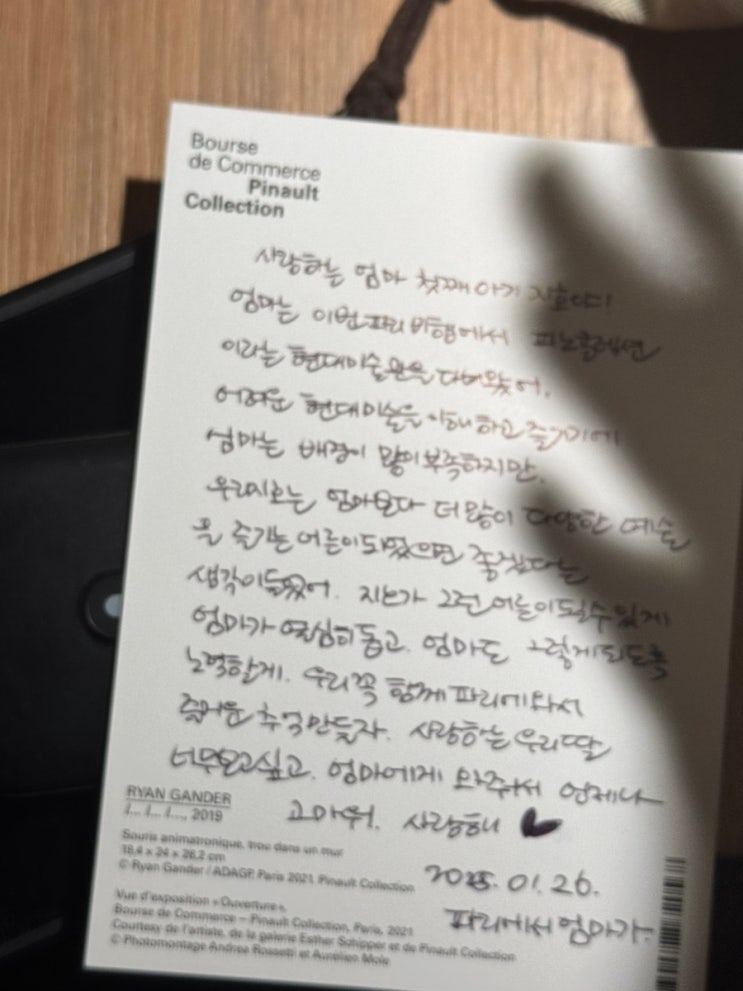 Bourse
de Commerce
Pinault
Collection
사랑하는 엄마 첫째 아기 지호야!
엄마는 이번 파리 비행에서 피노콜렉션
이라는 현대미술관을 다녀왔어.
어려운 현대미술을 이해하고 즐기기에
엄마는 배경이 많이 부족하지만,
우리지호는 엄마보다 더 많이 다양한 예술
을 즐기는 어른이 되었으면 좋겠다는
생각이 들었어. 지호가 그런 어른이 될 수 있게
엄마가 열심히 돕고, 엄마도 그렇게 되도록
노력할게. 우리 꼭 함께 파리에 와서
즐거운 추억 만들자. 사랑하는 우리 딸
너무 보고싶고, 엄마에게 와주어서 언제나
고마워. 사랑해
2025. 01. 26.
파리에서 엄마가.
RYAN GANDER
/... /... /..., 2019
Souris animatronique, trou dans un mur
18,4 x 24 x 26,2 cm
© Ryan Gander / ADAGP, Paris 2021. Pinault Collection
Vue d'exposition « Ouverture »,
Bourse de Commerce – Pinault Collection, Paris, 2021
Courtesy de l'artiste, de la galerie Esther Schipper et de Pinault Collection
© Photomontage Andrea Rossetti et Aurélien Mole